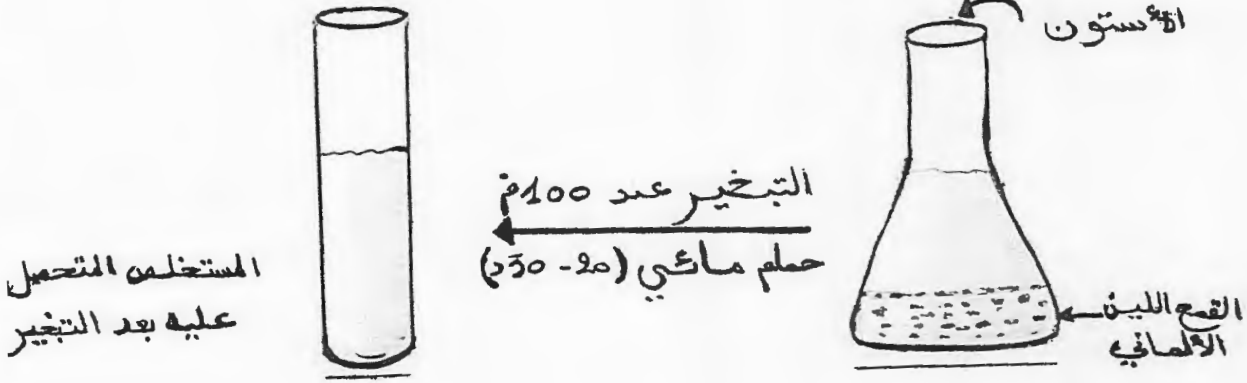 الأستون
القمح اللين
الألماني
التبخير عند 100م°
حمام مائي (20-30د)
المستخلص المتحصل
عليه بعد التبخير